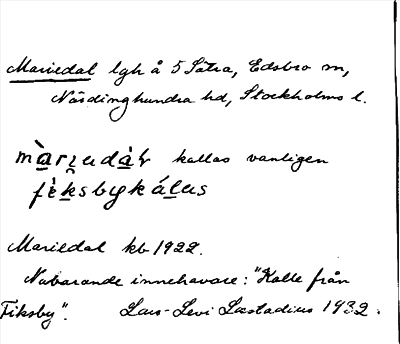 Mariedal lgh å 5 Sätra, Edsbro sn,
Närdinghundra hd, Stockholms l.
màri̯udàɫ kallas vanligen
fèksbykálas
Mariedal kb 1922.
Nuvarande innehavare: "Kalle från
Fiksby". Lars-Levi Læstadius 1932.